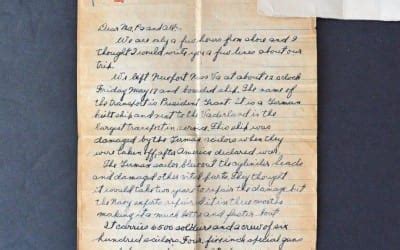 Dear Ma, Pa and all:
We are only a few hours from shore and I
thought I would write you a few lines about our
trip.
We left Newport News Va at about 12 oclock
Friday May 17 and boarded ship. The name of
the transport is President Grant it is a German
built ship and next to the Vaderland is the
largest transport in service. This ship was
damaged by the German sailors when they
were taken off after America declared war.
The German sailors blew out the cylinder heads
and damaged other vital parts. They thought
it would take two years to repair the damage but
the Navy experts repaired it in three months
making it a much better and faster boat.
It carries 6000 soldiers and a crew of six
hundred sailors. Four, five inch special gun